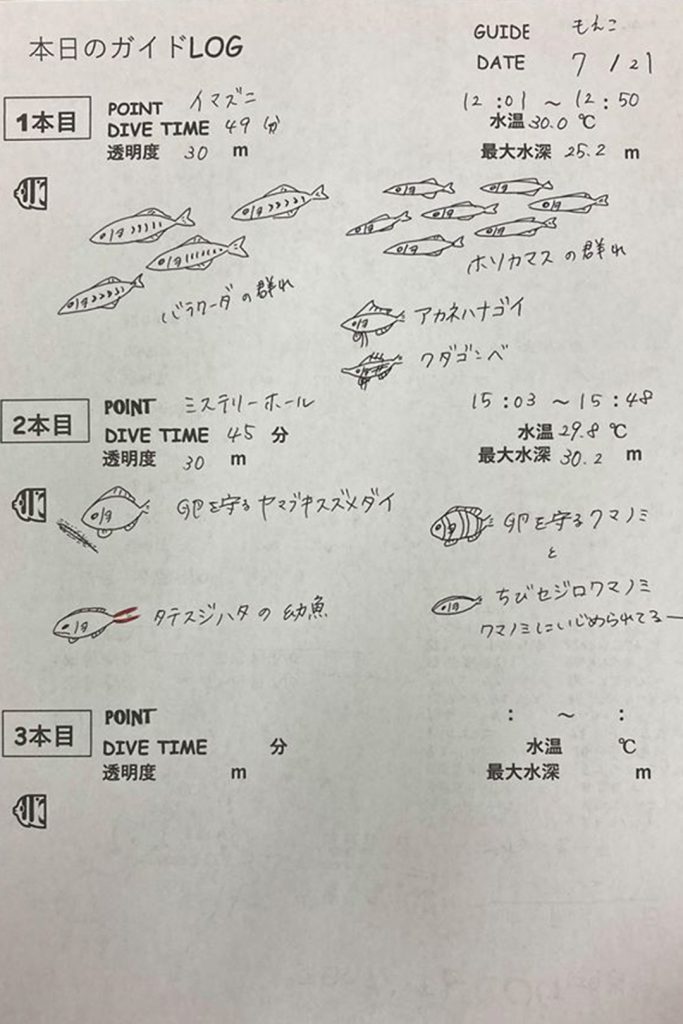 本日のガイドLOG
GUIDE もえこ
DATE 7 / 21
1本目
POINT イマズニ
12 : 01 ～ 12 : 50
DIVE TIME 49 (分)
水温 30.0 ℃
透明度 30 m
最大水深 25.2 m
バラクーダの群れ
ホソカマスの群れ
アカネハナゴイ
クダゴンベ
2本目
POINT ミステリーホール
15 : 03 ～ 15 : 48
DIVE TIME 45 分
水温 29.8 ℃
透明度 30 m
最大水深 30.2 m
卵を守るヤマブキスズメダイ
卵を守るクマノミ
と
ちびセジロクマノミ
クマノミにいじめられてるー
タテスジハタの幼魚
3本目
POINT
: ～ :
DIVE TIME 分
水温 ℃
透明度 m
最大水深 m